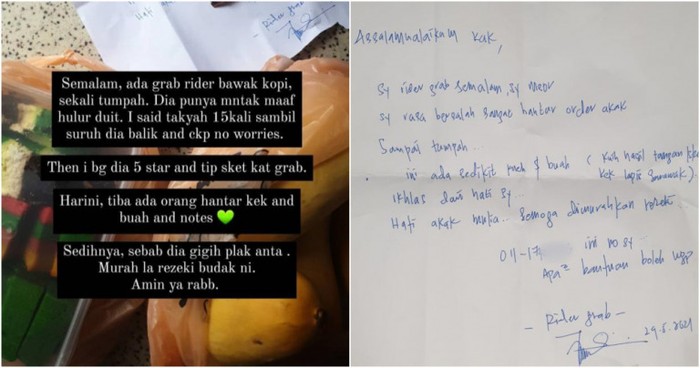 Rider grab
Semalam, ada grab rider bawak kopi,
sekali tumpah. Dia punya mntak maaf
hulur duit. I said takyah 15kali sambil
suruh dia balik and ckp no worries.
Then i bg dia 5 star and tip sket kat grab.
Harini, tiba ada orang hantar kek and
buah and notes 💚
Sedihnya, sebab dia gigih plak anta .
Murah la rezeki budak ni.
Amin ya rabb.
Assalamualaikum kak,
sy rider grab semalam, sy
sy rasa bersalah sangat hantar order akak
Sampai tumpah..
ini ada sedikit & buah ( Kuih hasil tangan
kek lapis Sarawak).
Ikhlas dari hati sy..
Hati akak mulia.. Semoga dimurahkan rezeki
011-17 ini no sy..
Apa² bantuan boleh wsp
- Rider grab -
29.5.2021